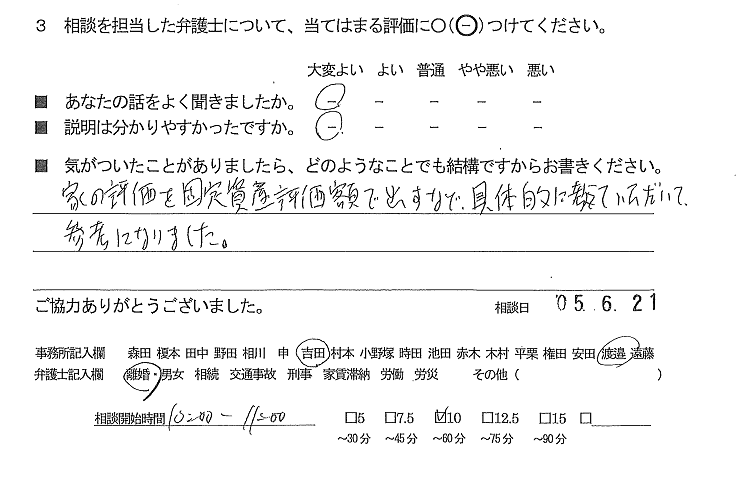 3 相談を担当した弁護士について、当てはまる評価に○(⊖)つけてください。
大変よい よい 普通 やや悪い 悪い
■ あなたの話をよく聞きましたか。 － － － － －
■ 説明は分かりやすかったですか。 － － － － －
■ 気がついたことがありましたら、どのようなことでも結構ですからお書きください。
家の評価を固定資産評価額で出すなど、具体的に教えていただいて、
参考になりました。
ご協力ありがとうございました。 相談日 '05.6.21
事務所記入欄 森田 榎本 田中 野田 相川 申 吉田 村本 小野塚 時田 池田 赤木 木村 平栗 権田 安田 渡邉 遠藤
弁護士記入欄 離婚・男女 相続 交通事故 刑事 家賃滞納 労働 労災 その他 ( )
相談開始時間 10:00 － 11:00 □5 □7.5 ☑10 □12.5 □15 □
～30分 ～45分 ～60分 ～75分 ～90分